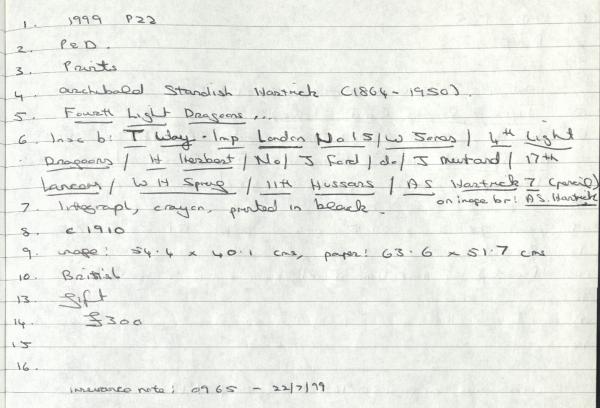 1. 1999 P22
2. P&D.
3. Prints
4. Archibald Standish Hartrick (1864-1950).
5. Fourth Light Dragoons...
6. Insc b: T Way. Imp London No 15/ W Jones/ 4th Light
Dragoons/ H Herbert/ No/ J Ford/ do/ J Mustard/ 17th
Lancers/ W H Spring/ 11th Hussars/ A S Hartrick 7 (pencil)
on image br: A.S. Hartrick
7. lithograph, crayon, printed in black.
8. c 1910
9. image: 54.4 x 40.1 cms, paper: 63.6 x 51.7 cms
10. British
13. gift
14. £300
15
16.
insurance note: 0965 - 22/7/99